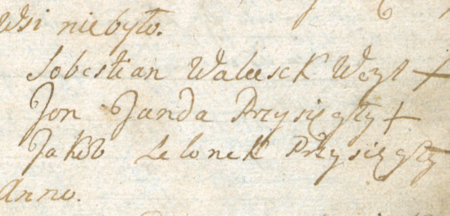 Wsi niebyło.
Sobestian Waleseck Woyt +
Jon Janda Przysięgły +
Jakób Lelonek Przysięgły
Anno.